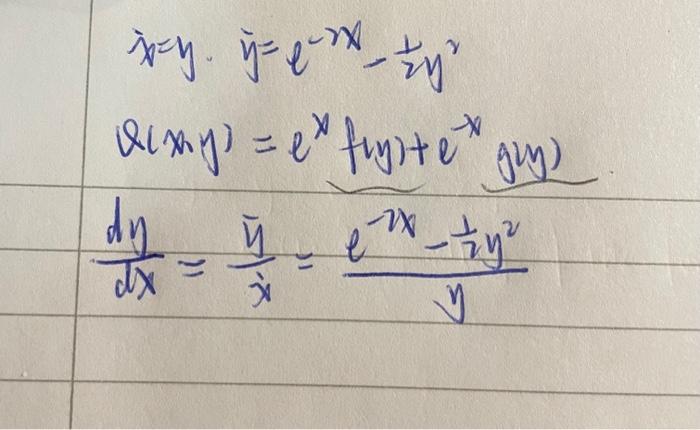 ẋ=y. ẏ=e^{-2x} - ½y²
Q(x,y) = e^x f(y) + e^{-x} g(y)
dy/dx = ẏ/ẋ = (e^{-2x} - ½y²)/y